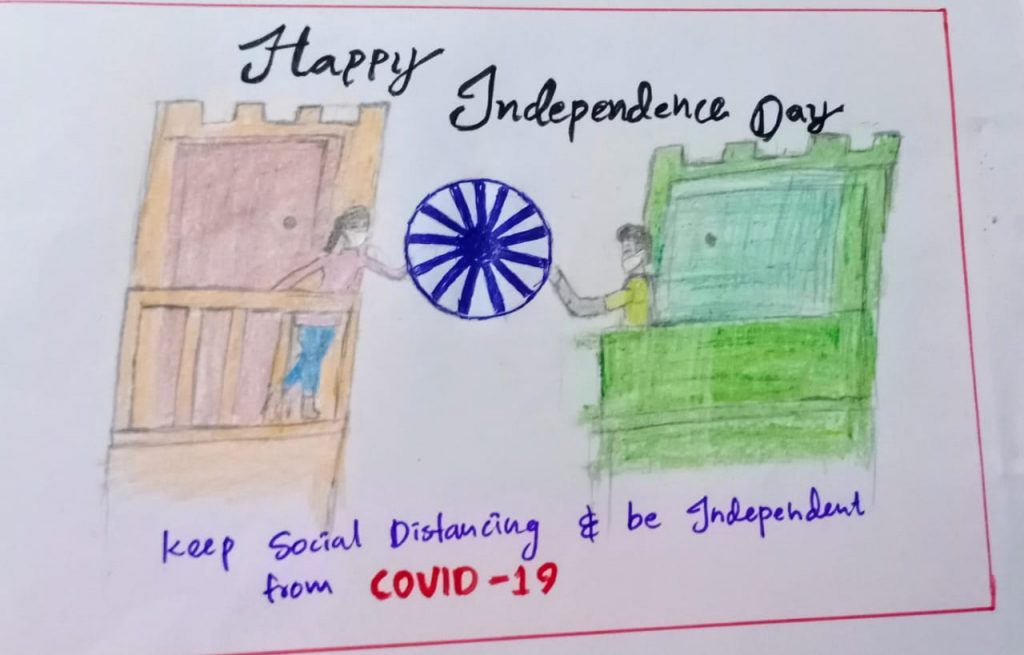 Happy
Independence Day
Keep Social Distancing & be Independent
from COVID-19